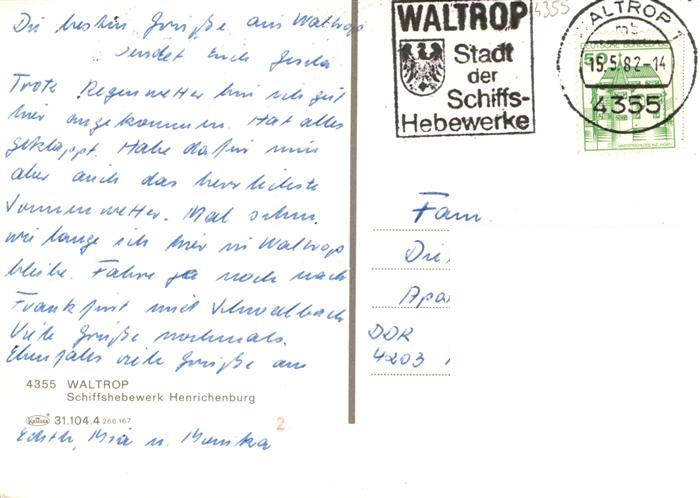 Die besten Grüße aus Waltrop
sendet Euch Gisela
Trotz Regenwetter bin ich gut
hier angekommen. Hat alles
geklappt. Habe dafür nun
aber auch das herrlichste
Sonnenwetter. Mal sehn,
wie lange ich hier in Waltrop
bleibe. Fahre ja noch nach
Frankfurt und Schwalbach
Viele Grüße nochmals.
Ebenfalls viele Grüße an
4355 WALTROP
Schiffshebewerk Henrichenburg
31.104.4 266 167
2
Edith, Mia u. Monika
WALTROP
Stadt
der
Schiffs-
Hebewerke
4355
WALTROP 1
mb
15.5.82-14
4355
DEUTSCHE BUNDESPOST
50
Fam.
Die
Apa
DDR
4203